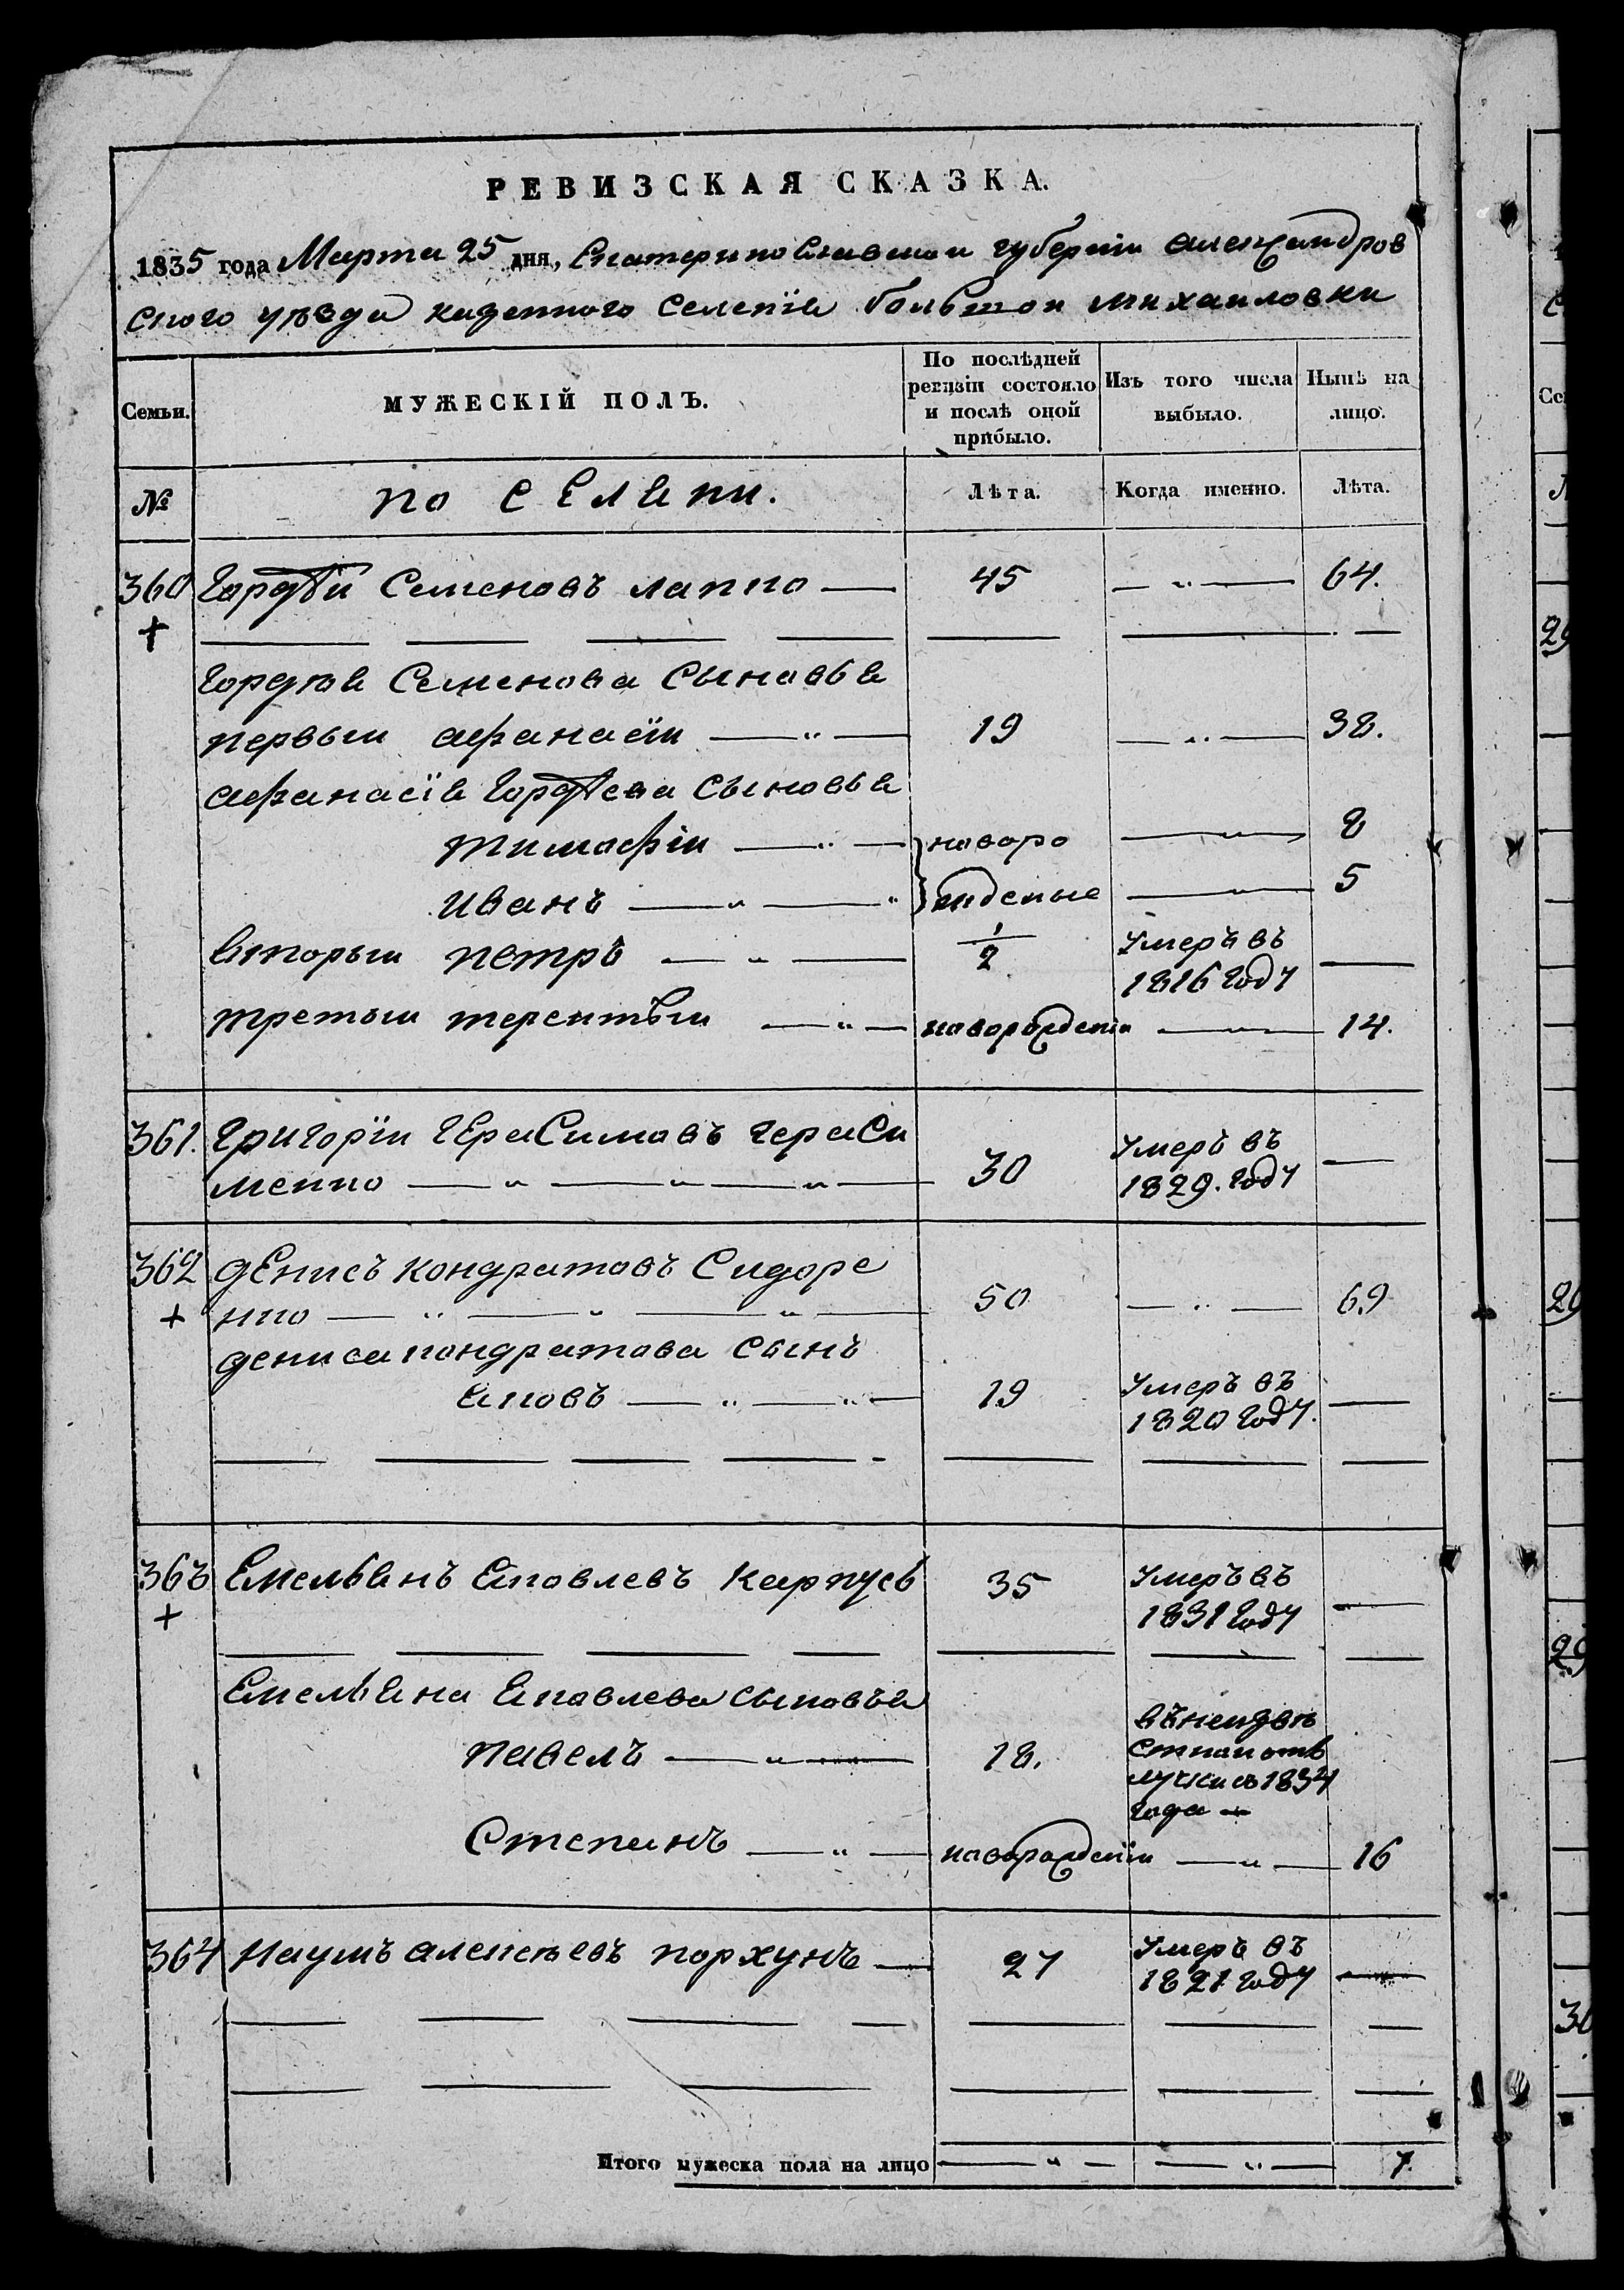 РЕВИЗСКАЯ СКАЗКА.
1835 года Марта 25 дня, Екатеринославской губернiи александров
ского уѣзда казенного селенiя большой михайловки
Семьи. МУЖЕСКIЙ ПОЛЪ. По послѣдней ревизiи состояло и послѣ оной прибыло. Изъ того числа выбыло. Нынѣ на лицо.
№ Лѣта. Когда именно. Лѣта.
360 Гордѣй Семеновъ лапко — 45 — „ — 64.
+
Гордѣя Семенова Сыновья
первый афанасiй — „ — 19 — „ — 38.
афанасiя Гордѣева Сыновья
тимофiй — „ — новоро — „ — 8
иванъ — „ — „ жденые — „ — 5
вторый петръ — „ — 1/2 умеръ въ
1816 году —
третый терентiй — „ — новорожденiй — „ — 14.
361. Григорiй Герасимовъ Гераси умеръ въ
менко — „ — „ — „ — 30 1829. году —
362 денисъ кондратовъ Сидоре
+ нко — „ — „ — „ — 50 — „ — 69
дениса кондратова сынъ
яковъ — „ — „ — 19 умеръ въ
1820 году. —
363 Емельянъ яковлевъ карпусь 35 умеръ въ
+ 1831 году —
Емельяна яковлева сыновья
павелъ — „ — 18.
лучки съ 1834
года —
Степанъ — „ — новорожденiй — „ — 16
364 Наумъ алексѣевъ порхунъ — 27 умеръ въ
1821 году —
Итого мужеска пола на лицо — „ — — „ — 7.